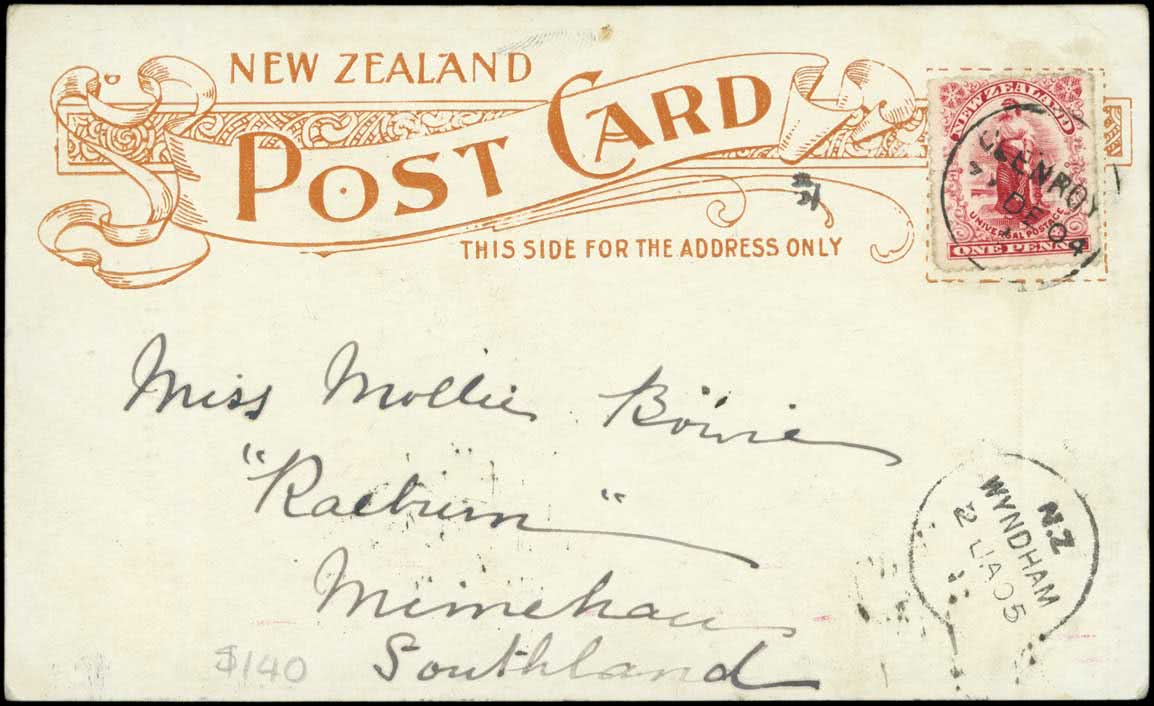 NEW ZEALAND
POST CARD
THIS SIDE FOR THE ADDRESS ONLY
NEW ZEALAND
UNIVERSAL POSTAGE
ONE PENNY
GLENROY
DE 04
Miss Mollie Bowie
"Raeburn"
Mimihau
Southland
N.Z
WYNDHAM
2 JA 05
$140